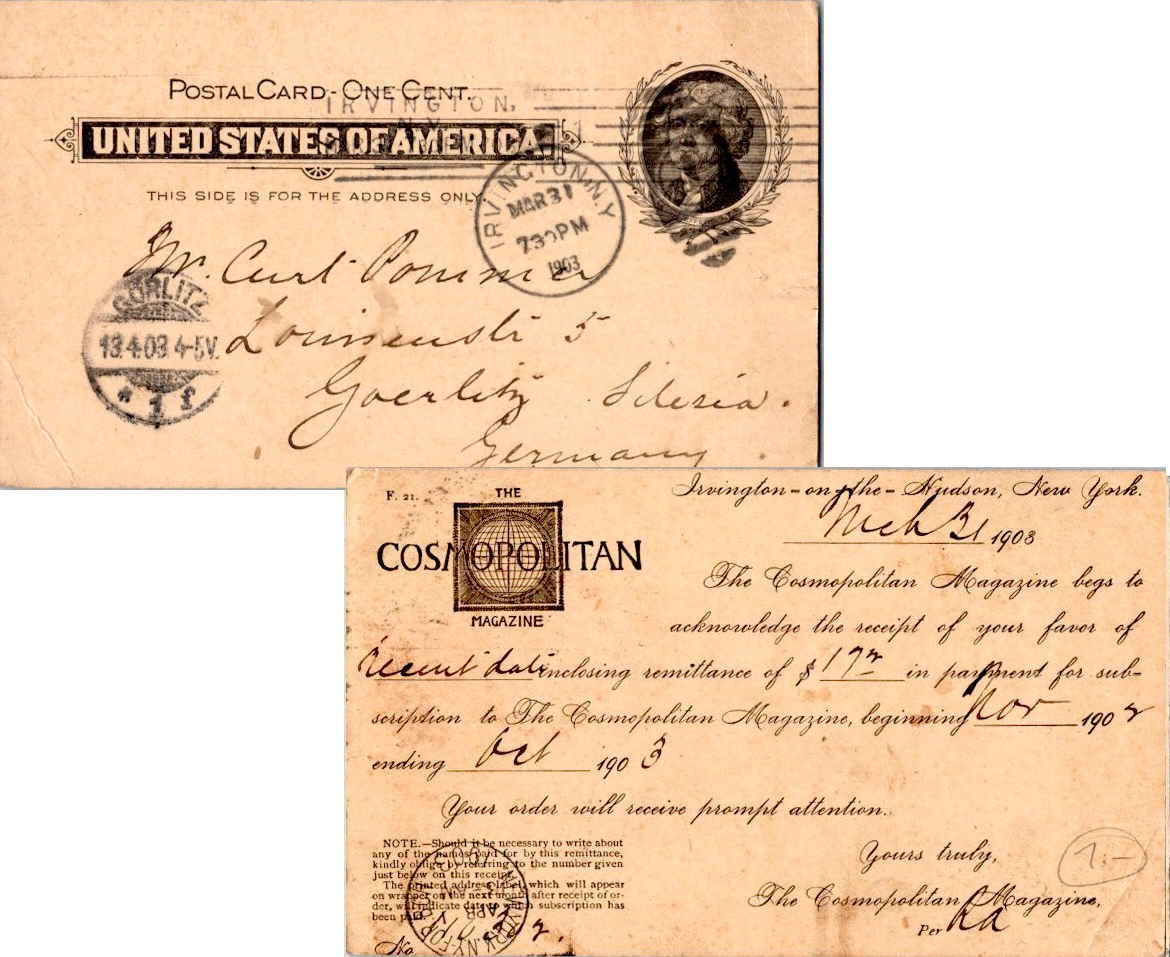 POSTAL CARD - ONE CENT.
UNITED STATES OF AMERICA
THIS SIDE IS FOR THE ADDRESS ONLY.
IRVINGTON,
N.Y.
IRVINGTON, N.Y
MAR 31
730PM
1903
Mr. Curt Pommer
Louisenstr 5
Goerlitz Silesia.
Germany
GÖRLITZ
13.4.03 4-5V.
* 1 f
F. 21.
THE
COSMOPOLITAN
MAGAZINE
Irvington-on-the-Hudson, New York.
Mch 31 1903
The Cosmopolitan Magazine begs to
acknowledge the receipt of your favor of
recent date inclosing remittance of $ in payment for sub-
scription to The Cosmopolitan Magazine, beginning Nov 1902
ending Oct 1903
Your order will receive prompt attention.
NOTE.—Should it be necessary to write about
any of the names paid for by this remittance,
kindly oblige by referring to the number given
just below on this receipt.
The printed address label, which will appear
on wrapper on the next month after receipt of or-
der, will indicate date to which subscription has
been paid.
No
Yours truly,
The Cosmopolitan Magazine,
Per
1.-